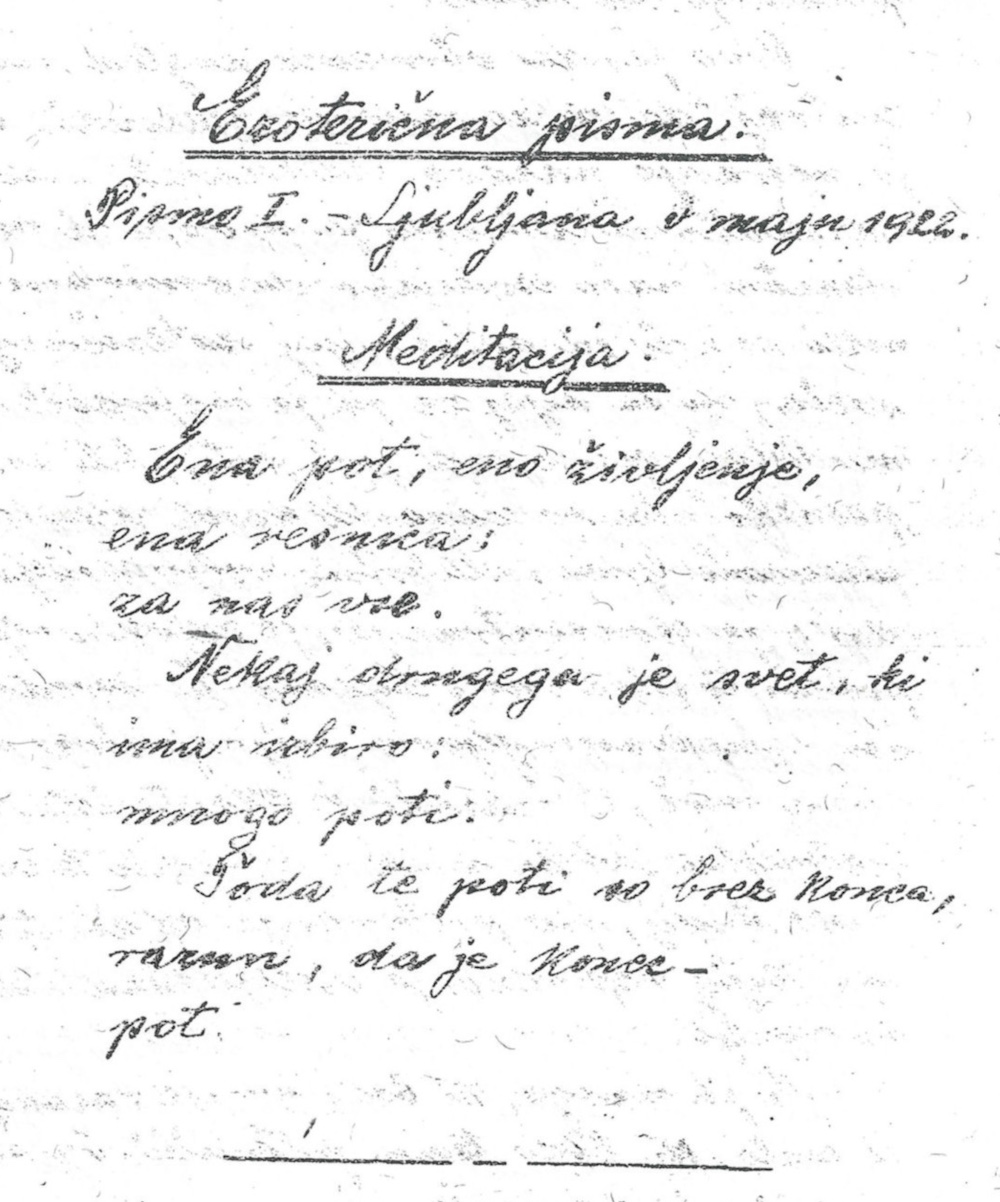 Ezoterična pisma.
Pismo I. - Ljubljana v maju 1922.
Meditacija.
Ena pot, eno življenje,
ena resnica:
za nas vse.
Nekaj drugega je svet, ki
ima izbiro:
mnogo poti.
Toda te poti so brez konca,
razun, da je konec -
pot.